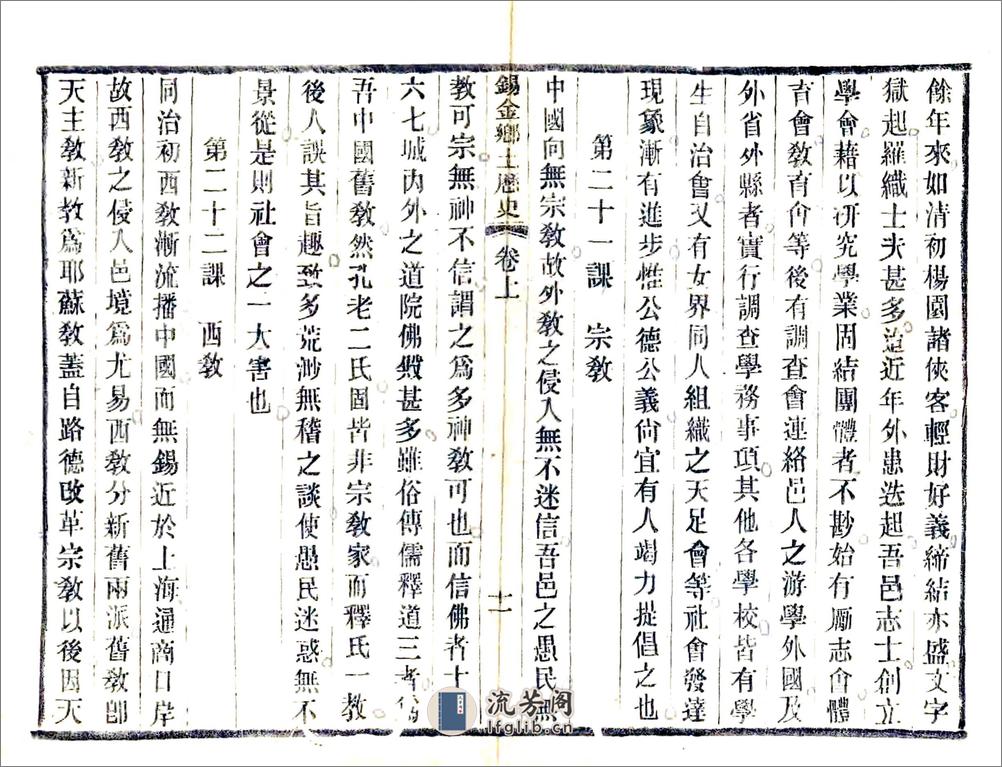 餘年來如清初楊園諸俠客輕財好義締結亦盛文字
獄起羅織士夫甚多迨近年外患迭起吾邑志士創立
學會藉以研究學業固結團體者不尠始有厲志會體
育會敎育會等後有調查會連絡邑人之游學外國及
外省外縣者實行調查學務事項其他各學校皆有學
生自治會又有女界同人組織之天足會等社會發達
現象漸有進步惟公德公義尙宜有人竭力提倡之也
第二十一課 宗敎
中國向無宗敎故外敎之侵入無不迷信吾邑之愚民無
錫金鄉土歷史 卷上 十一
敎可宗無神不信謂之爲多神敎可也而信佛者十之
六七城內外之道院佛殿甚多雖俗傳儒釋道三者爲
吾中國舊敎然孔老二氏固皆非宗敎家而釋氏一敎
後人誤其旨趣致多荒渺無稽之談使愚民迷惑無不
景從是則社會之一大害也
第二十二課 西敎
同治初西敎漸流播中國而無錫近於上海通商口岸
故西敎之侵入邑境爲尤易西敎分新舊兩派舊敎卽
天主敎新敎爲耶蘇敎蓋自路德改革宗敎以後因天
流芳阁
lfglib.cn